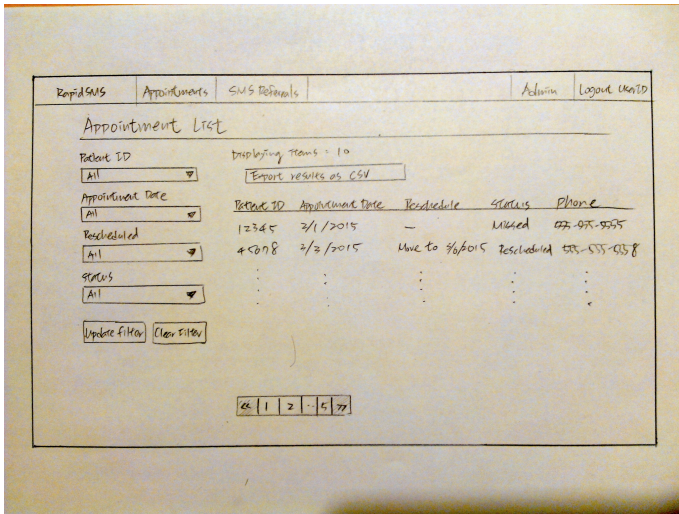 RapidSMS Appointments SMS Referrals Admin Logout UserID
Appointment List
Patient ID
All
Appointment Date
All
Rescheduled
All
Status
All
Update filter Clear Filter
Displaying Items = 10
Export results as CSV
Patient ID Appointment Date Reschedule Status Phone
12345 2/1/2015 — Missed
45678 2/2/2015 Move to Rescheduled
« 1 2 ... 5 »